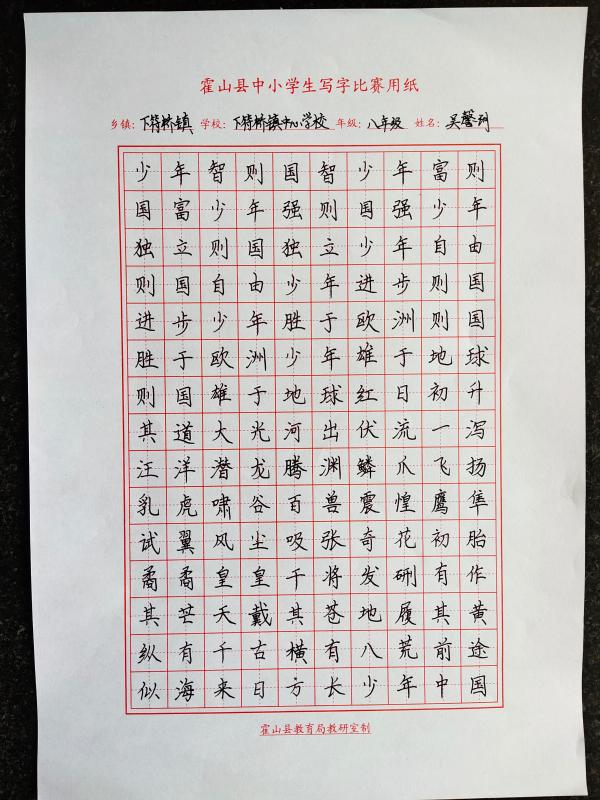 霍山县中小学生写字比赛用纸
乡镇：下符桥镇 学校：下符桥镇中心学校 年级：八年级 姓名：吴馨
少年智则国智少年富则
国富少年强则国强少年
独立则国独立少年自由
则国自由少年进步则国
进步少年胜于欧洲则国
胜于欧洲少年雄于地球
则国雄于地球红日初升
其道大光河出伏流一泻
汪洋潜龙腾渊鳞爪飞扬
乳虎啸谷百兽震惶鹰隼
试翼风尘吸张奇花初胎
矞矞皇皇干将发硎有作
其芒天戴其苍地履其黄
纵有千古横有八荒前途
似海来日方长少年中国
霍山县教育局教研室制